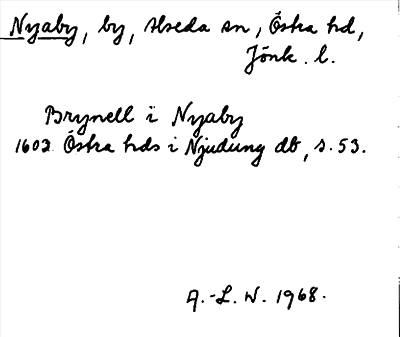 Nyaby, by, Alseda sn, Östra hd,
Jönk. l.
Brynell i Nyaby
1602 Östra hds i Njudung db, s. 53.
A.-L. W. 1968.